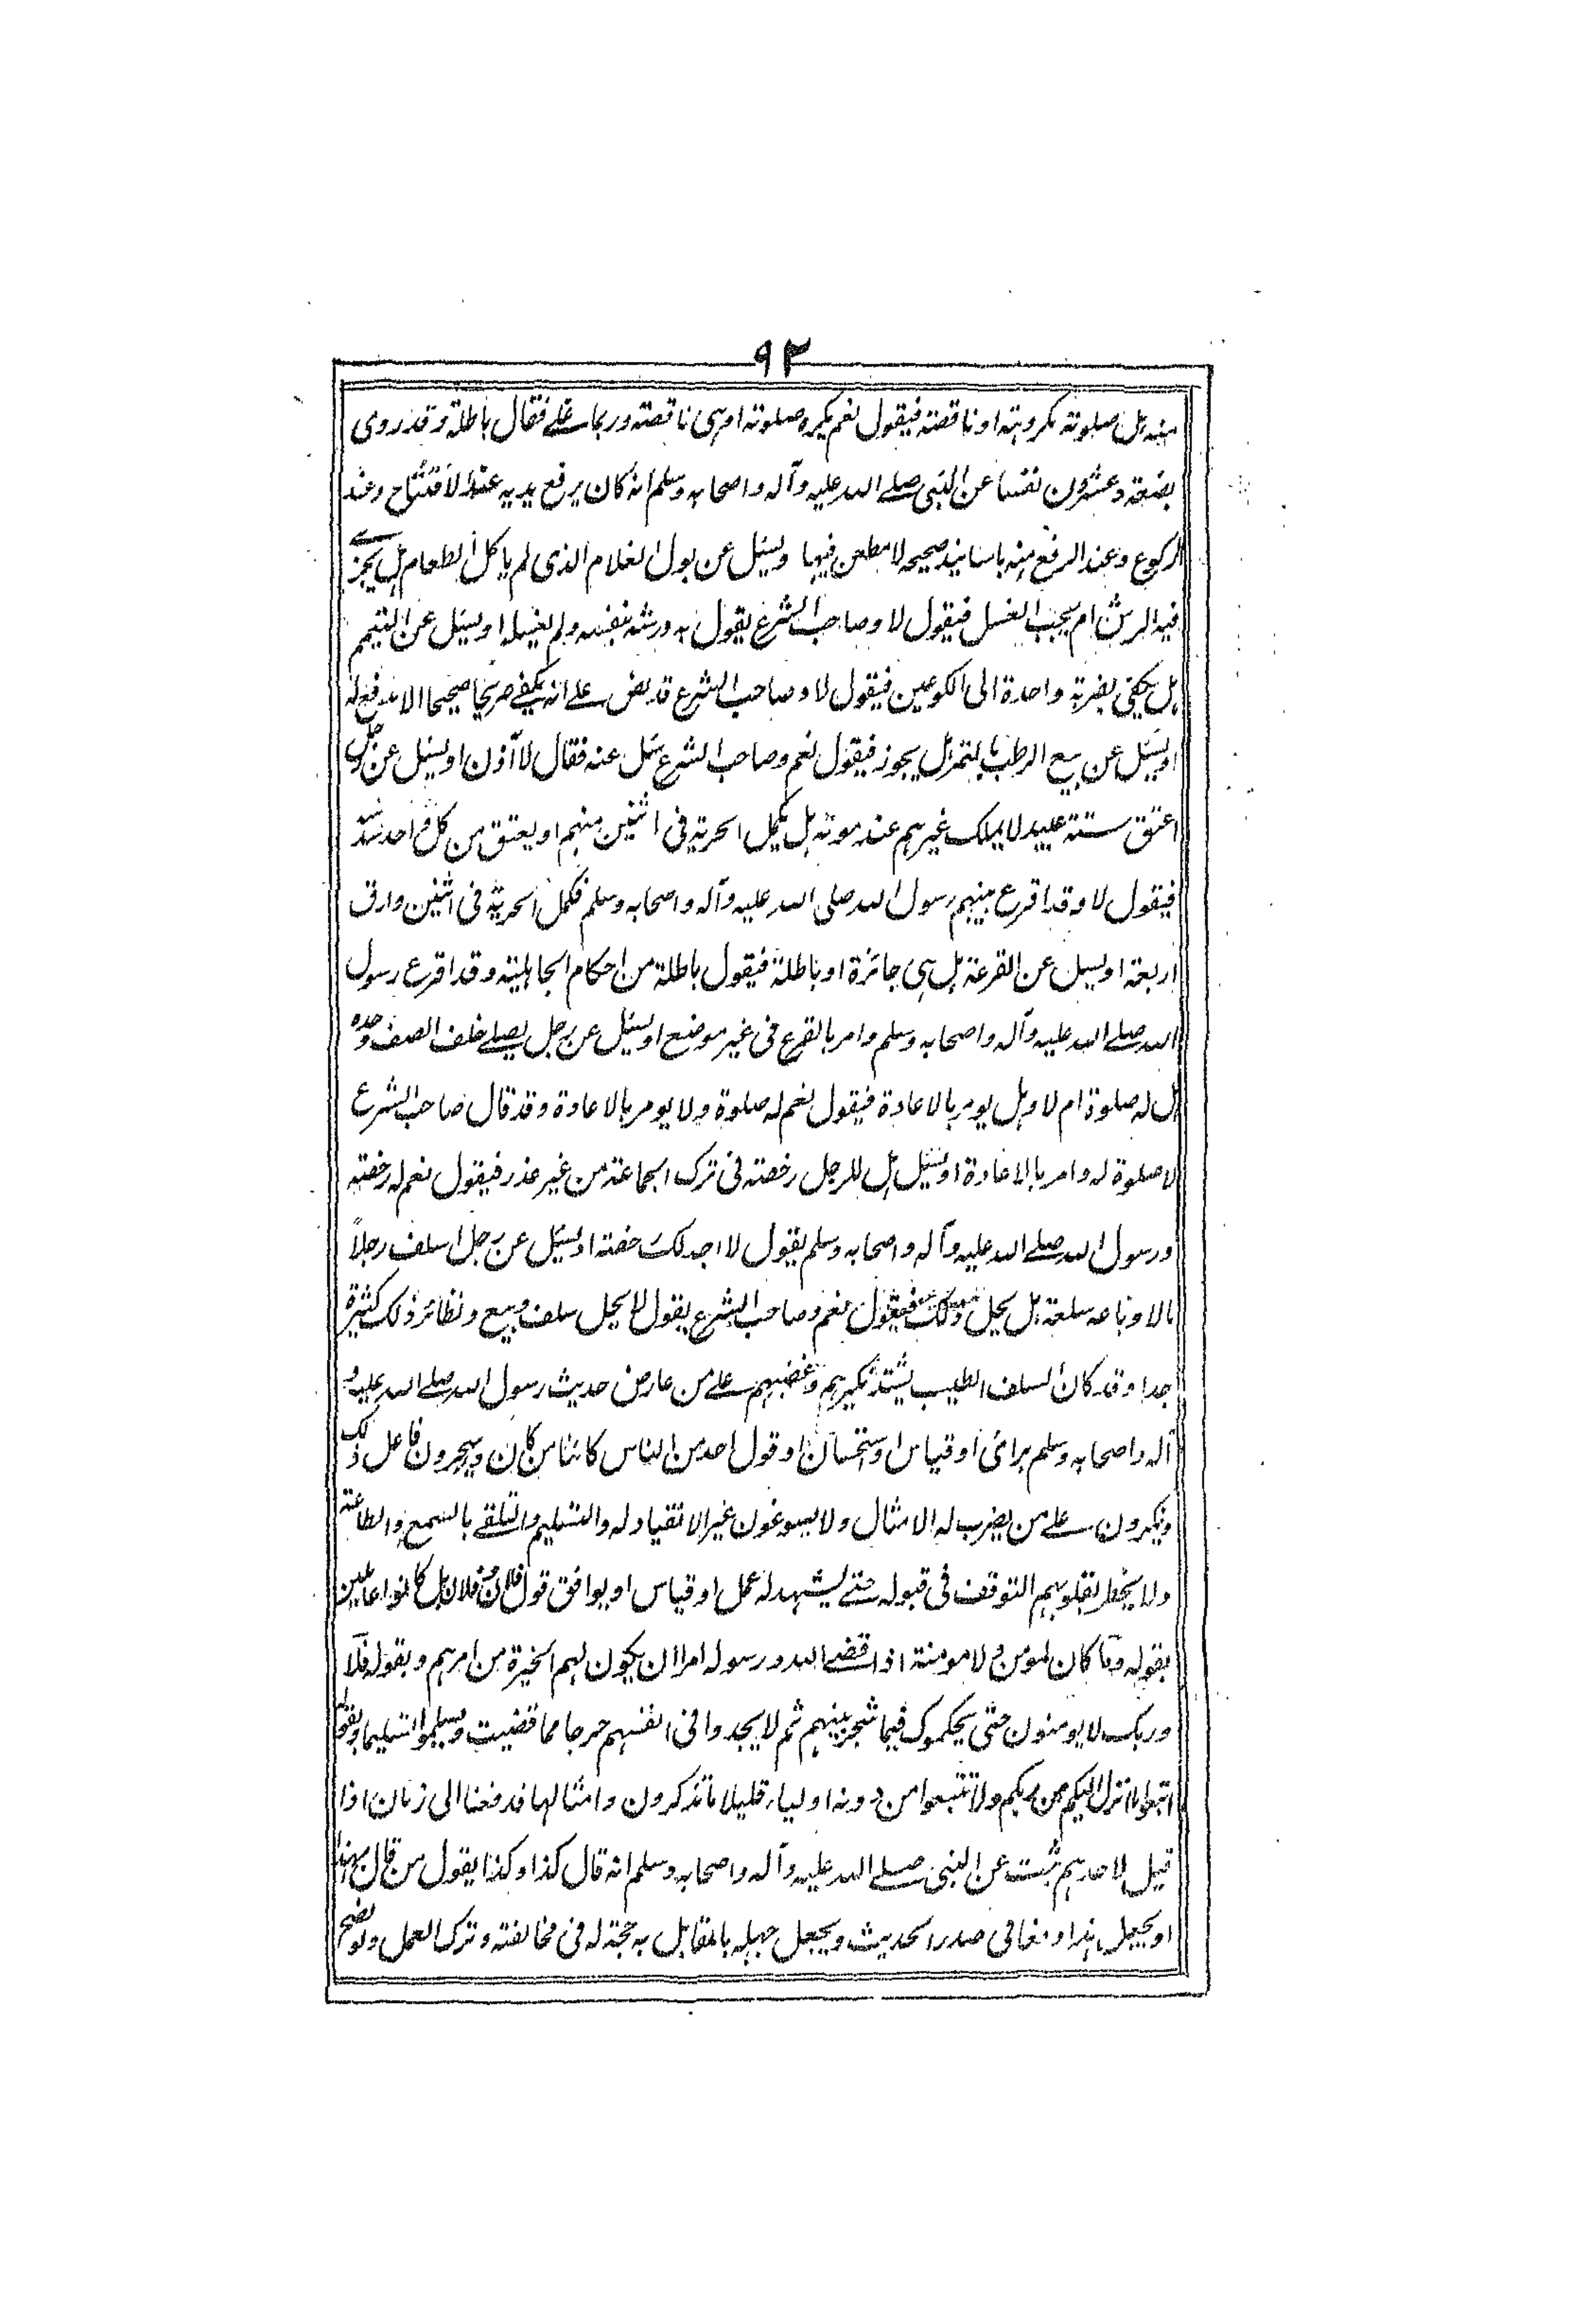 ٩٢
منه هل صلوته مكروهة او ناقصة فيقول نعم يكره صلوته او هي ناقصة وربما غلے فقال باطلة وقد روى
بضعة وعشرون نفسا عن النبي صلے الله عليه وآله واصحابه وسلم انه كان يرفع يديه عند الافتتاح وعند
الركوع وعند الرفع منه باسانيد صحيحة لا مطعن فيها ويسئل عن بول الغلام الذي لم ياكل الطعام هل يجزے
فيه الرش ام يجب الغسل فيقول لا وصاحب الشرع يقول به ورشه بنفسه ولم يغسله او يسئل عن التيمم
هل يكفي بضربة واحدة الى الكوعين فيقول لا وصاحب الشرع قد نص علے انه يكفے صريحا صحيحا لا مدفع له
او يسئل عن بيع الرطب بالتمر هل يجوز فيقول نعم وصاحب الشرع سئل عنه فقال لا آذن او يسئل عن رجل
اعتق ستة عبيد لا يملك غيرهم عند موته هل يكمل الحرية في اثنين منهم او يعتق من كل واحد سدسه
فيقول لا وقد اقرع بينهم رسول الله صلى الله عليه وآله واصحابه وسلم فكمل الحرية في اثنين وارق
اربعة او يسئل عن القرعة هل هي جائزة او باطلة فيقول باطلة من احكام الجاهلية وقد اقرع رسول
الله صلے الله عليه وآله واصحابه وسلم وامر بالقرع في غير موضع او يسئل عن رجل يصلے خلف الصف وحده
هل له صلوة ام لا وهل يومر بالاعادة فيقول نعم له صلوة ولا يومر بالاعادة وقد قال صاحب الشرع
لا صلوة له وامر بالاعادة او يسئل هل للرجل رخصة في ترك الجماعة من غير عذر فيقول نعم له رخصة
ورسول الله صلے الله عليه وآله واصحابه وسلم يقول لا اجد لك رخصة او يسئل عن رجل اسلف رجلاً
مالا وباعه سلعة هل يحل ذلك فيقول نعم وصاحب الشرع يقول لا يحل سلف وبيع ونظائر ذلك كثيرة
جدا وقد كان السلف الطيب يشتد نكيرهم وغضبهم علے من عارض حديث رسول الله صلے الله عليه و
آله واصحابه وسلم برائ او قياس او استحسان او قول احد من الناس كائنا من كان ويهجرون فاعل ذلك
وينكرون علے من يضرب له الامثال ولا يسوغون غير الانقياد له والتسليم والتلقے بالسمع والطاعة
ولا يخطر بقلوبهم التوقف في قبوله حتے يشهد له عمل او قياس او يوافق قول فلان وفلان بل كانوا عاملين
بقوله وما كان لمومن ولا مومنة اذا قضے الله ورسوله امرا ان يكون لهم الخيرة من امرهم وبقوله فلا
وربك لا يومنون حتى يحكموك فيما شجر بينهم ثم لا يجدوا في انفسهم حرجا مما قضيت ويسلموا تسليما وبقوله
اتبعوا ما انزل اليكم من ربكم ولا تتبعوا من دونه اولياء قليلا ما تذكرون وامثالها فدفعنا الى زمان اذا
قيل لاحدهم ثبت عن النبي صلے الله عليه وآله واصحابه وسلم انه قال كذا وكذا يقول من قال بهذا
او يجعل هذا دفعا في صدر الحديث ويجعل جهله بالمقابل به حجة له في مخالفته وترك العمل ولو نصح